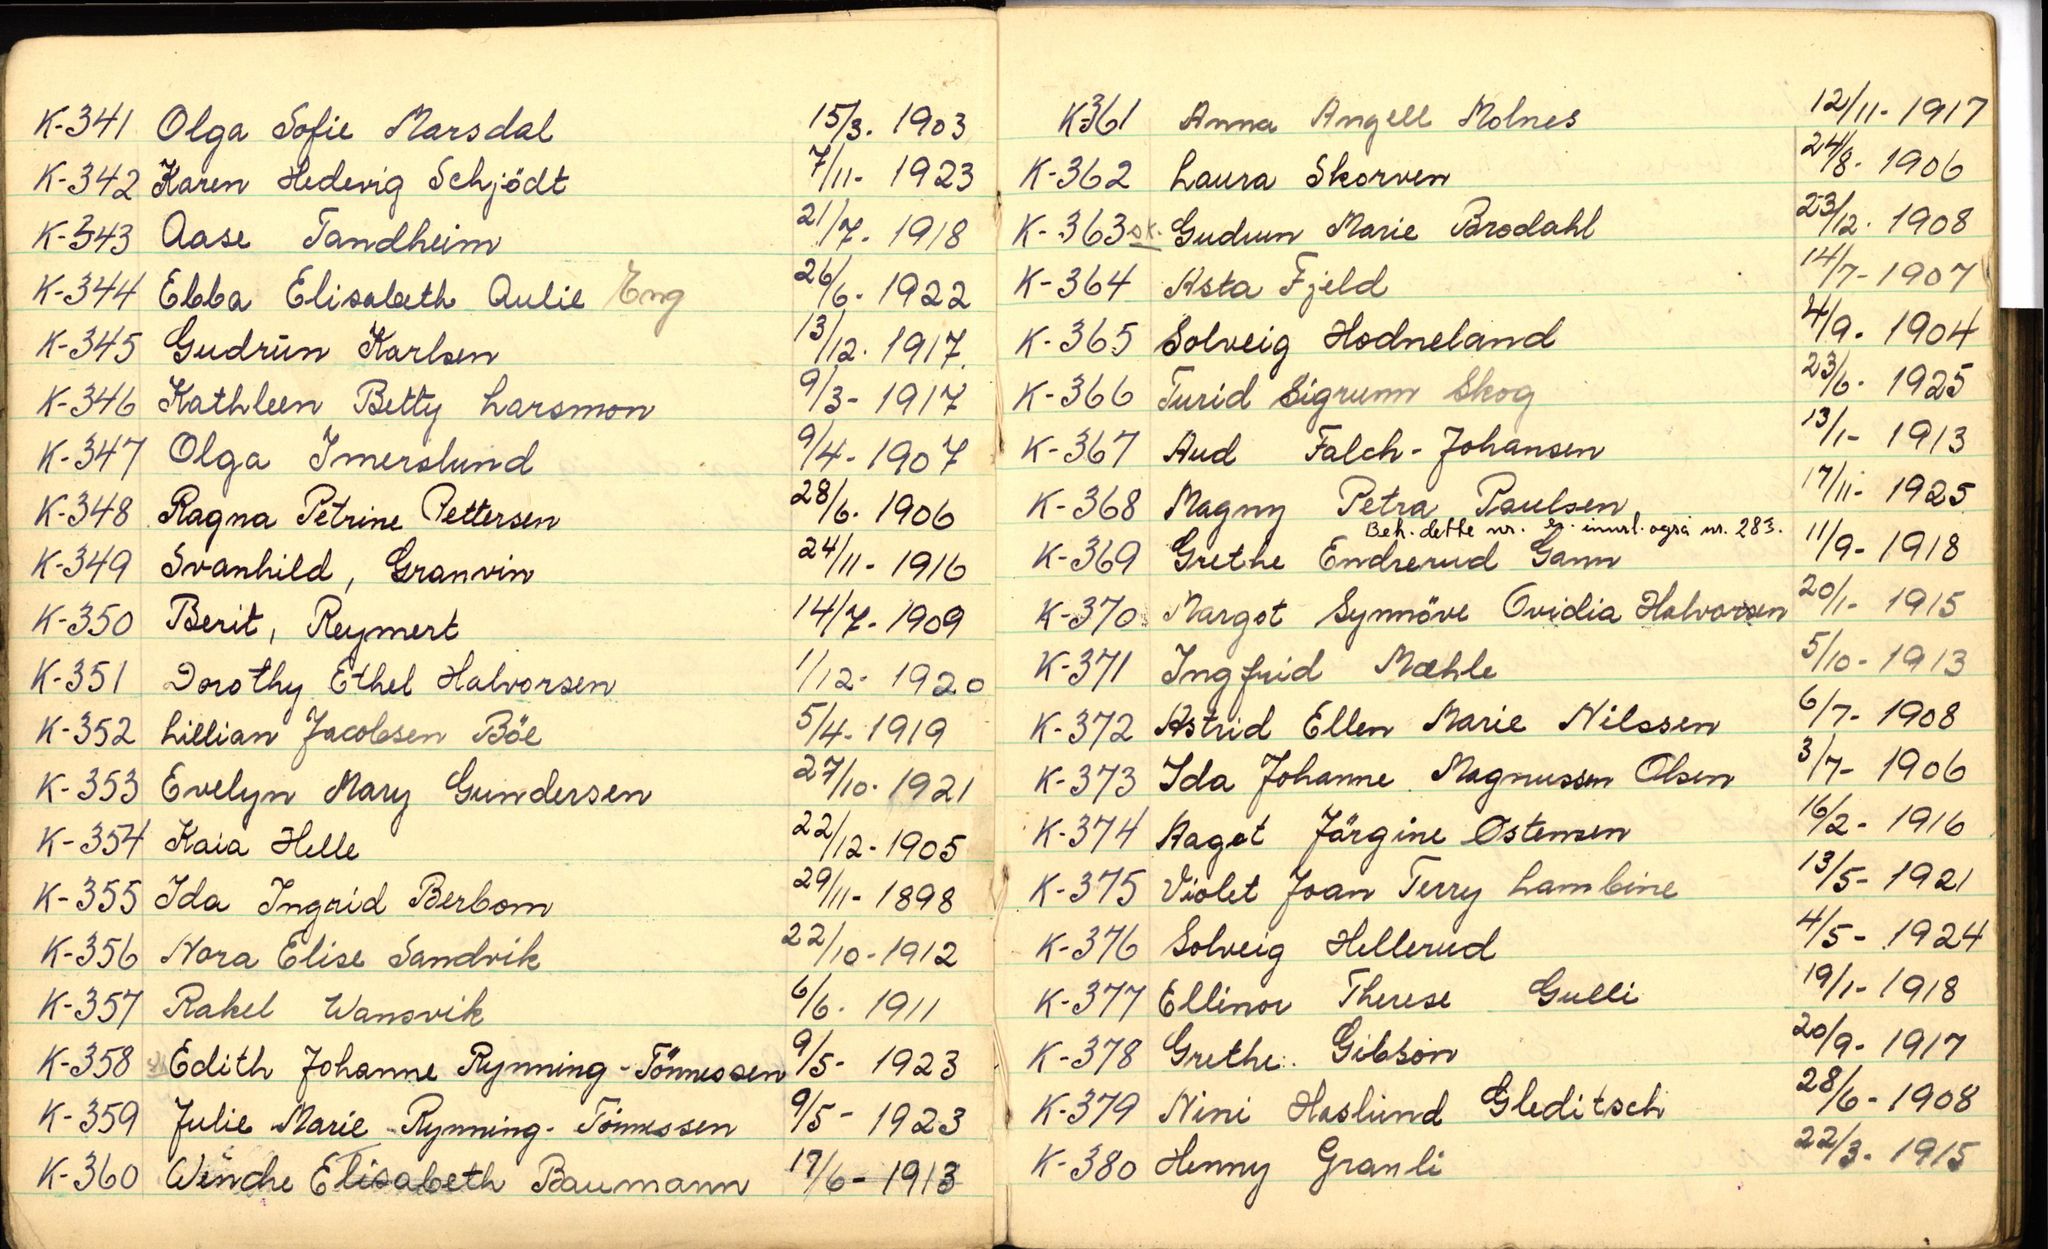 K-341 Olga Sofie Marsdal 15/3. 1903
K-342 Karen Hedevig Schjödt 7/11- 1923
K-343 Aase Tandheim 21/7. 1918
K-344 Ebba Elisabeth Aulie Eng 26/6. 1922
K-345 Gudrun Karlsen 13/12. 1917.
K-346 Kathleen Betty Larsmon 9/3- 1917
K-347 Olga Imerslund 9/4- 1907
K-348 Ragna Petrine Pettersen 28/6. 1906
K-349 Svanhild, Granvin 24/11- 1916
K-350 Berit, Reymert 14/7- 1909
K-351 Dorothy Ethel Halvorsen 1/12- 1920
K-352 Lillian Jacobsen Böe 5/4. 1919
K-353 Evelyn Mary Gundersen 27/10. 1921
K-354 Kaia Helle 22/12. 1905
K-355 Ida Ingrid Berbom 29/11- 1898
K-356 Nora Elise Sandvik 22/10-1912
K-357 Rakel Wansvik 6/6. 1911
K-358 Edith Johanne Rynning-Tönnessen 9/5- 1923
K-359 Julie Marie Rynning-Tönnessen 9/5- 1923
K-360 Wenche Elisabeth Baumann 17/6- 1913
K-361 Anna Angell Molnes 12/11- 1917
K-362 Laura Skorven 24/8. 1906
K-363 sk. Gudrun Marie Brodahl 23/12. 1908
K-364 Asta Fjeld 14/7- 1907
K-365 Solveig Hodneland 4/9. 1904
K-366 Turid Sigrunn Skog 23/6. 1925
K-367 Aud Falch-Johansen 13/1- 1913
K-368 Magny Petra Paulsen 17/11- 1925
Beh. dette nr. også nr. 283.
K-369 Grethe Endrerud Gann 11/9- 1918
K-370 Margot Synnöve Ovidia Halvorsen 20/1- 1915
K-371 Ingfrid Mæhle 5/10- 1913
K-372 Astrid Ellen Marie Nilssen 6/7- 1908
K-373 Ida Johanne Magnussen Olsen 3/7- 1906
K-374 Aagot Jörgine Ostensen 16/2- 1916
K-375 Violet Joan Terry Lambine 13/5- 1921
K-376 Solveig Hellerud 4/5- 1924
K-377 Ellinor Therese Gulli 19/1- 1918
K-378 Grethe Gibson 20/9- 1917
K-379 Nini Haslund Gleditsch 28/6- 1908
K-380 Henny Granli 22/3. 1915